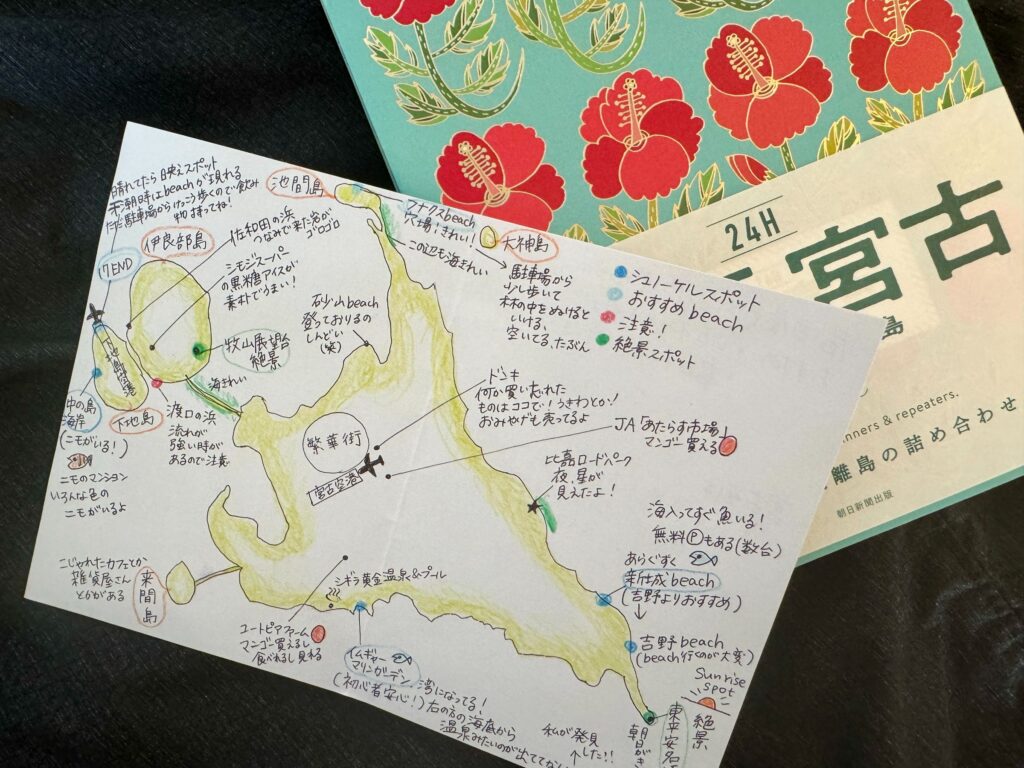 晴れてたら映えスポット
干潮時はbeachが現れる
ただ駐車場からけっこう歩くので飲み
物持ってね!
17END
伊良部島
佐和田の浜
つなみで来た岩が
ゴロゴロ
シモジスーパー
の黒糖アイスが
素朴でうまい!
牧山展望台
絶景
海きれい
下地島空港
中の島
海岸
(ニモがいる!)
ニモのマンション
いろんな色の
ニモがいるよ
下地島
渡口の浜
流れが
強い時が
あるので注意
池間島
フナクスbeach
穴場!きれい!
この辺も海きれい
大神島
駐車場から
少し歩いて
林の中をぬけると
いける、
空いてる、たぶん
シュノーケルスポット
おすすめbeach
注意!
絶景スポット
砂山beach
登っておりるの
しんどい
(笑)
ドンキ
何か買い忘れた
ものはココで!うきわとか!
おみやげも売ってるよ
繁華街
宮古空港
JA「あたらす市場」
マンゴー買える
比嘉ロードパーク
夜、星が
見えたよ!
海入ってすぐ魚いる!
無料Ⓟもある(数台)
あらぐすく
新城beach
(吉野よりおすすめ)
吉野beach
(beach行くのが大変)
Sunrise
spot
絶景
東平安名
朝日がき
私が発見
しした!!
こじゃれたカフェとか
雑貨屋さん
とかがある
来間島
シギラ黄金温泉&プール
ユートピアファーム
マンゴー買えるし
食べれるし見れる
イムギャー
マリンガーデン
(初心者安心!)
湾になってる!
右の方の海底から
温泉みたいのが出ててな
24H
宮古
島
nners & repeaters.
離島の詰め合わせ
朝日新聞出版